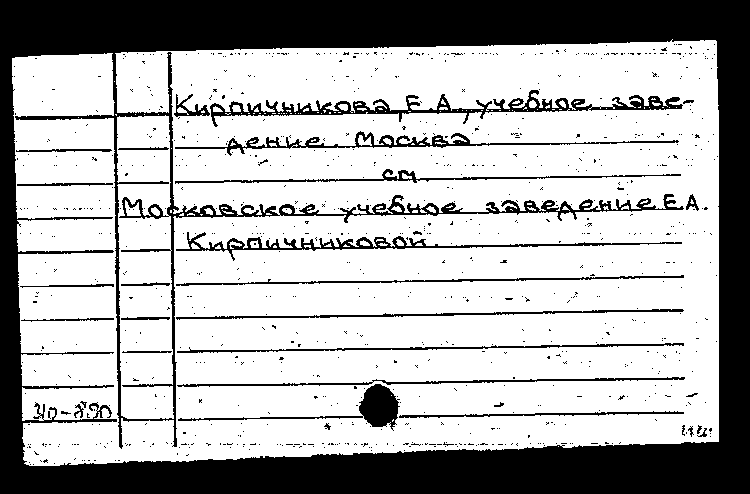 Кирпичникова, Е.А., учебное заве-
дение. Москва
см.
Московское учебное заведение Е.А.
Кирпичниковой.
310-890